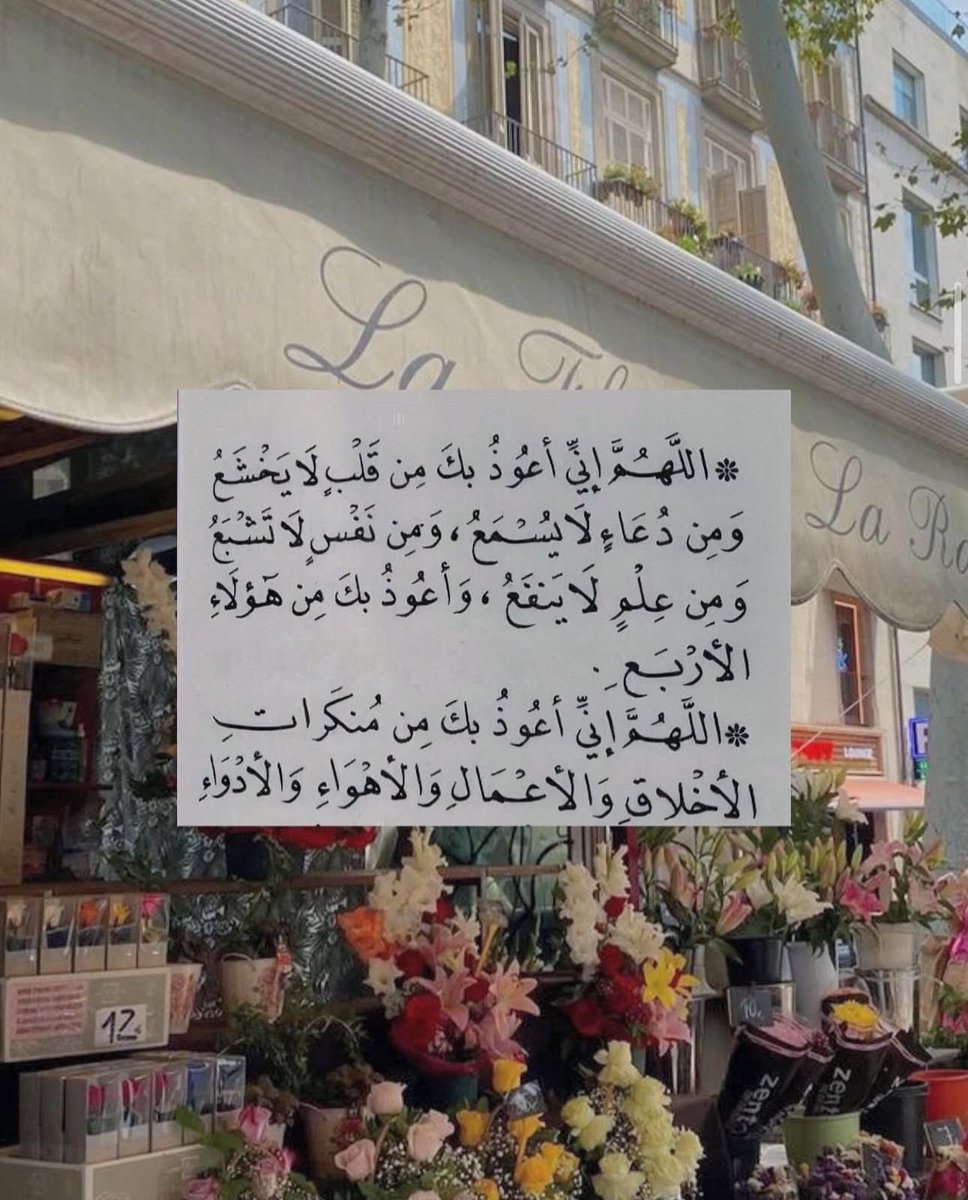 La
La
❋ اللَّهُمَّ إنِّي أعُوذُ بكَ مِن قَلْبٍ لَا يَخْشَعُ
وَمِن دُعَاءٍ لَا يُسْمَعُ ، وَمِن نَفْسٍ لَا تَشْبَعُ
وَمِن عِلْمٍ لَا يَنفَعُ ، وَأعُوذُ بكَ مِن هَؤلَاءِ
الأرْبَعِ .
❋ اللَّهُمَّ إنِّي أعُوذُ بكَ مِن مُنكَرَاتِ
الأخْلاقِ وَالأعْمَالِ وَالأهْوَاءِ وَالأدْوَاءِ
LOUNGE
12
10,